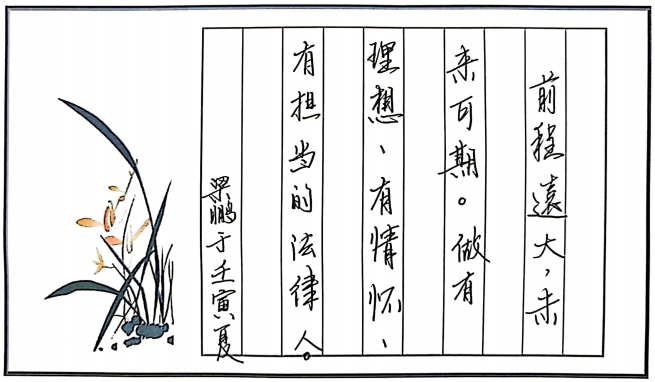 前程遠大，未
来可期。做有
理想、有情怀、
有担当的法律人。
梁鹏于壬寅夏